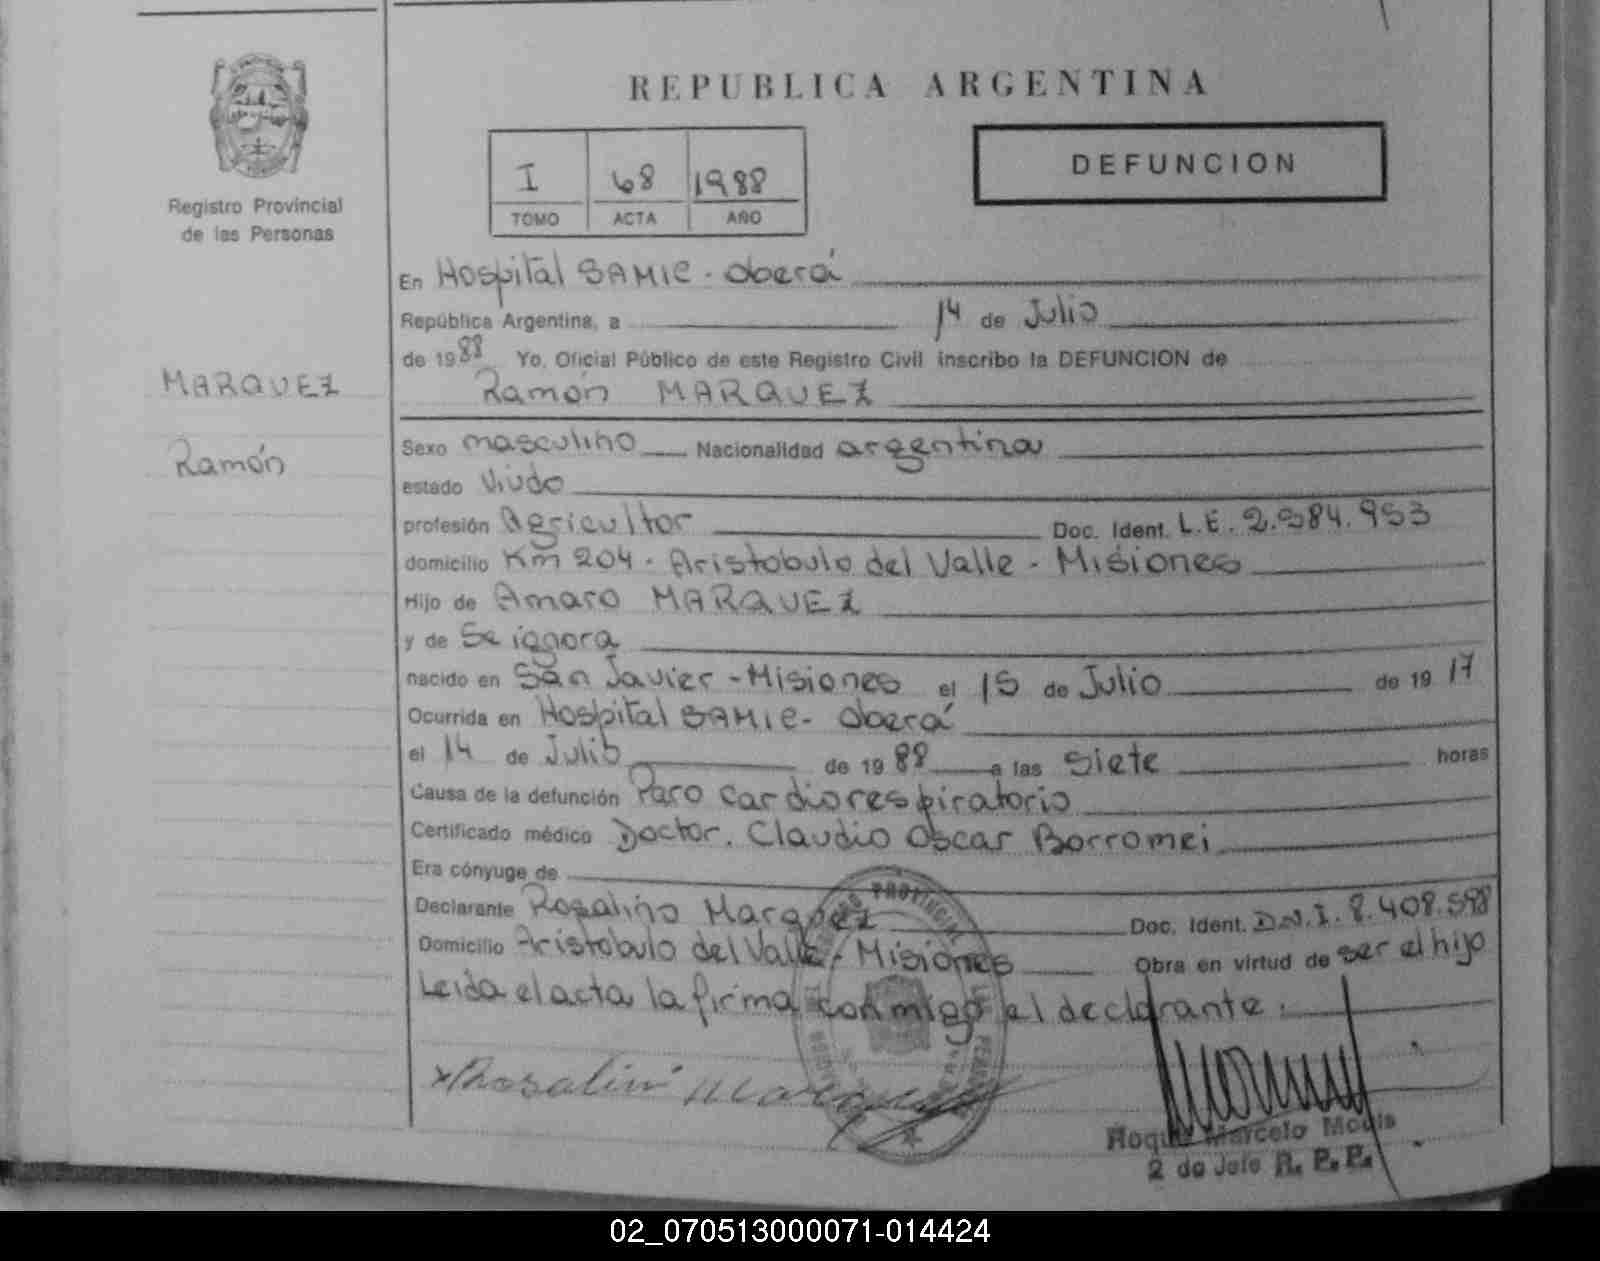 REPUBLICA ARGENTINA
I 68 1988
TOMO ACTA AÑO
DEFUNCION
Registro Provincial
de las Personas
MARQUEZ
Ramón
En Hospital SAMIC - Oberá
República Argentina, a 14 de Julio
de 1988 Yo, Oficial Público de este Registro Civil inscribo la DEFUNCION de
Ramón MARQUEZ
Sexo masculino Nacionalidad argentina
estado Viudo
profesión Agricultor Doc. Ident. L.E. 2.584.953
domicilio Km 204 - Aristobulo del Valle - Misiones
Hijo de Amaro MARQUEZ
y de Se ignora
nacido en San Javier - Misiones el 15 de Julio de 1917
Ocurrida en Hospital SAMIC - Oberá
el 14 de Julio de 1988 a las Siete horas
Causa de la defunción Paro cardiorespiratorio
Certificado médico Doctor. Claudio Oscar Borromei
Era cónyuge de
Declarante Rosalino Marquez Doc. Ident. D.N.I. 8.408.598
Domicilio Aristobulo del Valle - Misiones Obra en virtud de ser el hijo
Leida el acta la firma conmigo el declarante.
x Rosalin Marquez
PROVINCIAL
Roque Marcelo
2 do Jefe R. P. P.
02_070513000071-014424